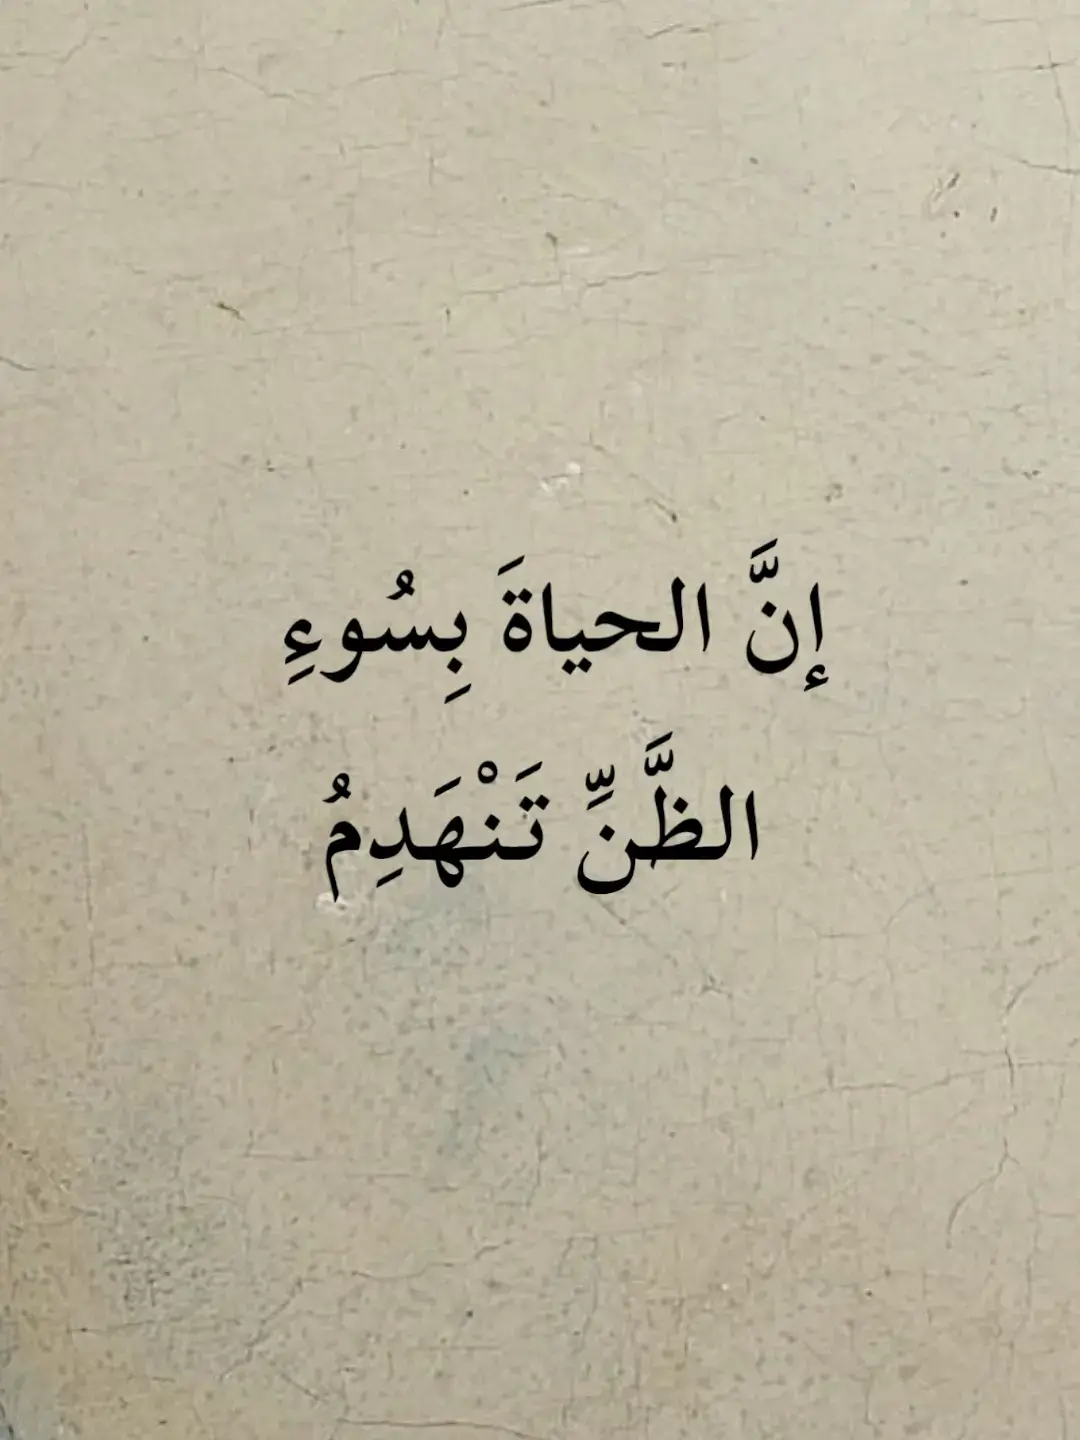 إنَّ الحياةَ بِسُوءِ
الظَّنِّ تَنْهَدِمُ